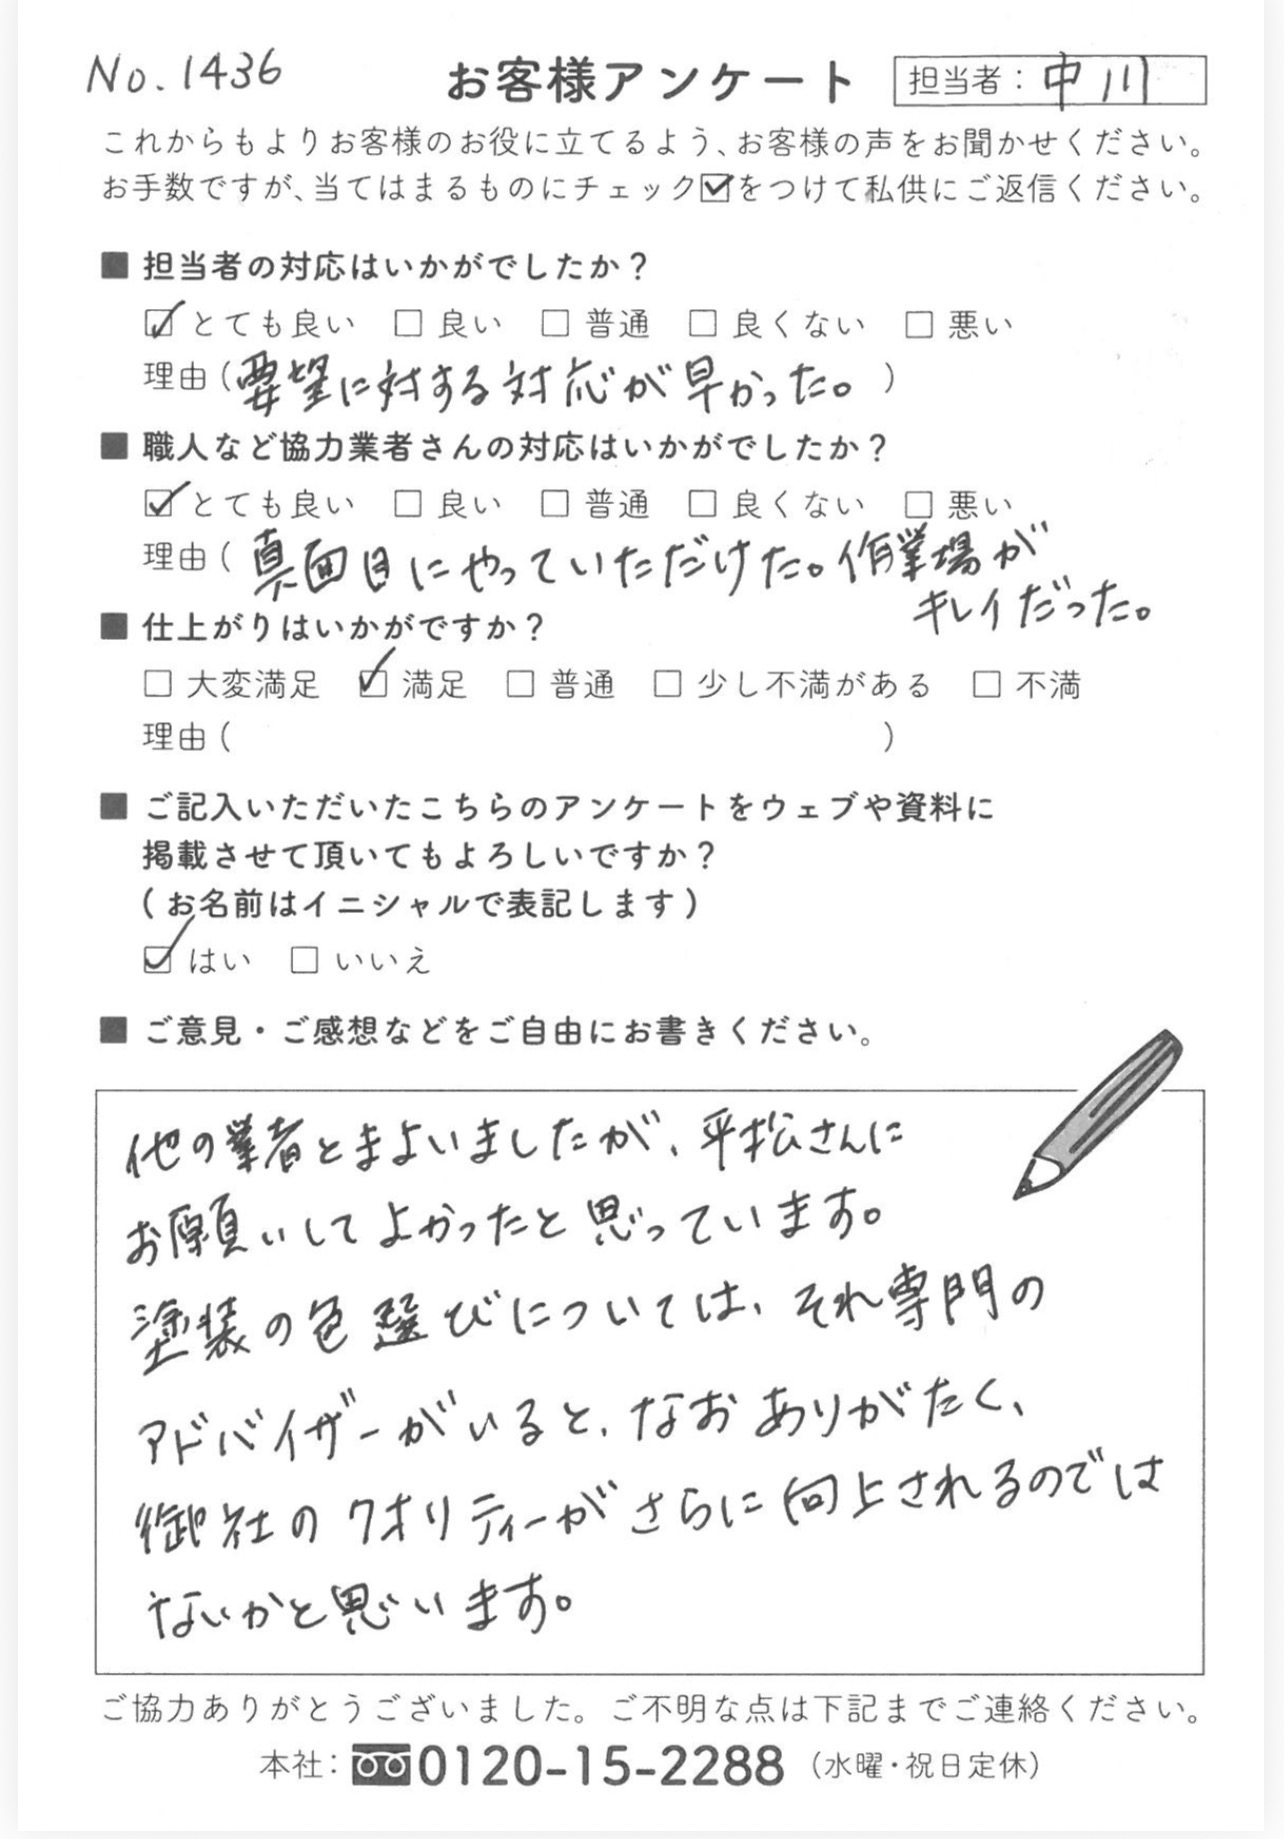 No.1436
お客様アンケート
担当者：中川
これからもよりお客様のお役に立てるよう、お客様の声をお聞かせください。
お手数ですが、当てはまるものにチェック☑をつけて私供にご返信ください。
■ 担当者の対応はいかがでしたか？
☑ とても良い □ 良い □ 普通 □ 良くない □ 悪い
理由（要望に対する対応が早かった。）
■ 職人など協力業者さんの対応はいかがでしたか？
☑ とても良い □ 良い □ 普通 □ 良くない □ 悪い
理由（真面目にやっていただけた。作業場が
キレイだった。
■ 仕上がりはいかがですか？
□ 大変満足 ☑ 満足 □ 普通 □ 少し不満がある □ 不満
理由（ ）
■ ご記入いただいたこちらのアンケートをウェブや資料に
掲載させて頂いてもよろしいですか？
（お名前はイニシャルで表記します）
☑ はい □ いいえ
■ ご意見・ご感想などをご自由にお書きください。
他の業者とまよいましたが、平松さんに
お願いしてよかったと思っています。
塗装の色選びについては、それ専門の
アドバイザーがいると、なおありがたく、
御社のクオリティーがさらに向上されるのでは
ないかと思います。
ご協力ありがとうございました。ご不明な点は下記までご連絡ください。
本社：0120-15-2288（水曜・祝日定休）